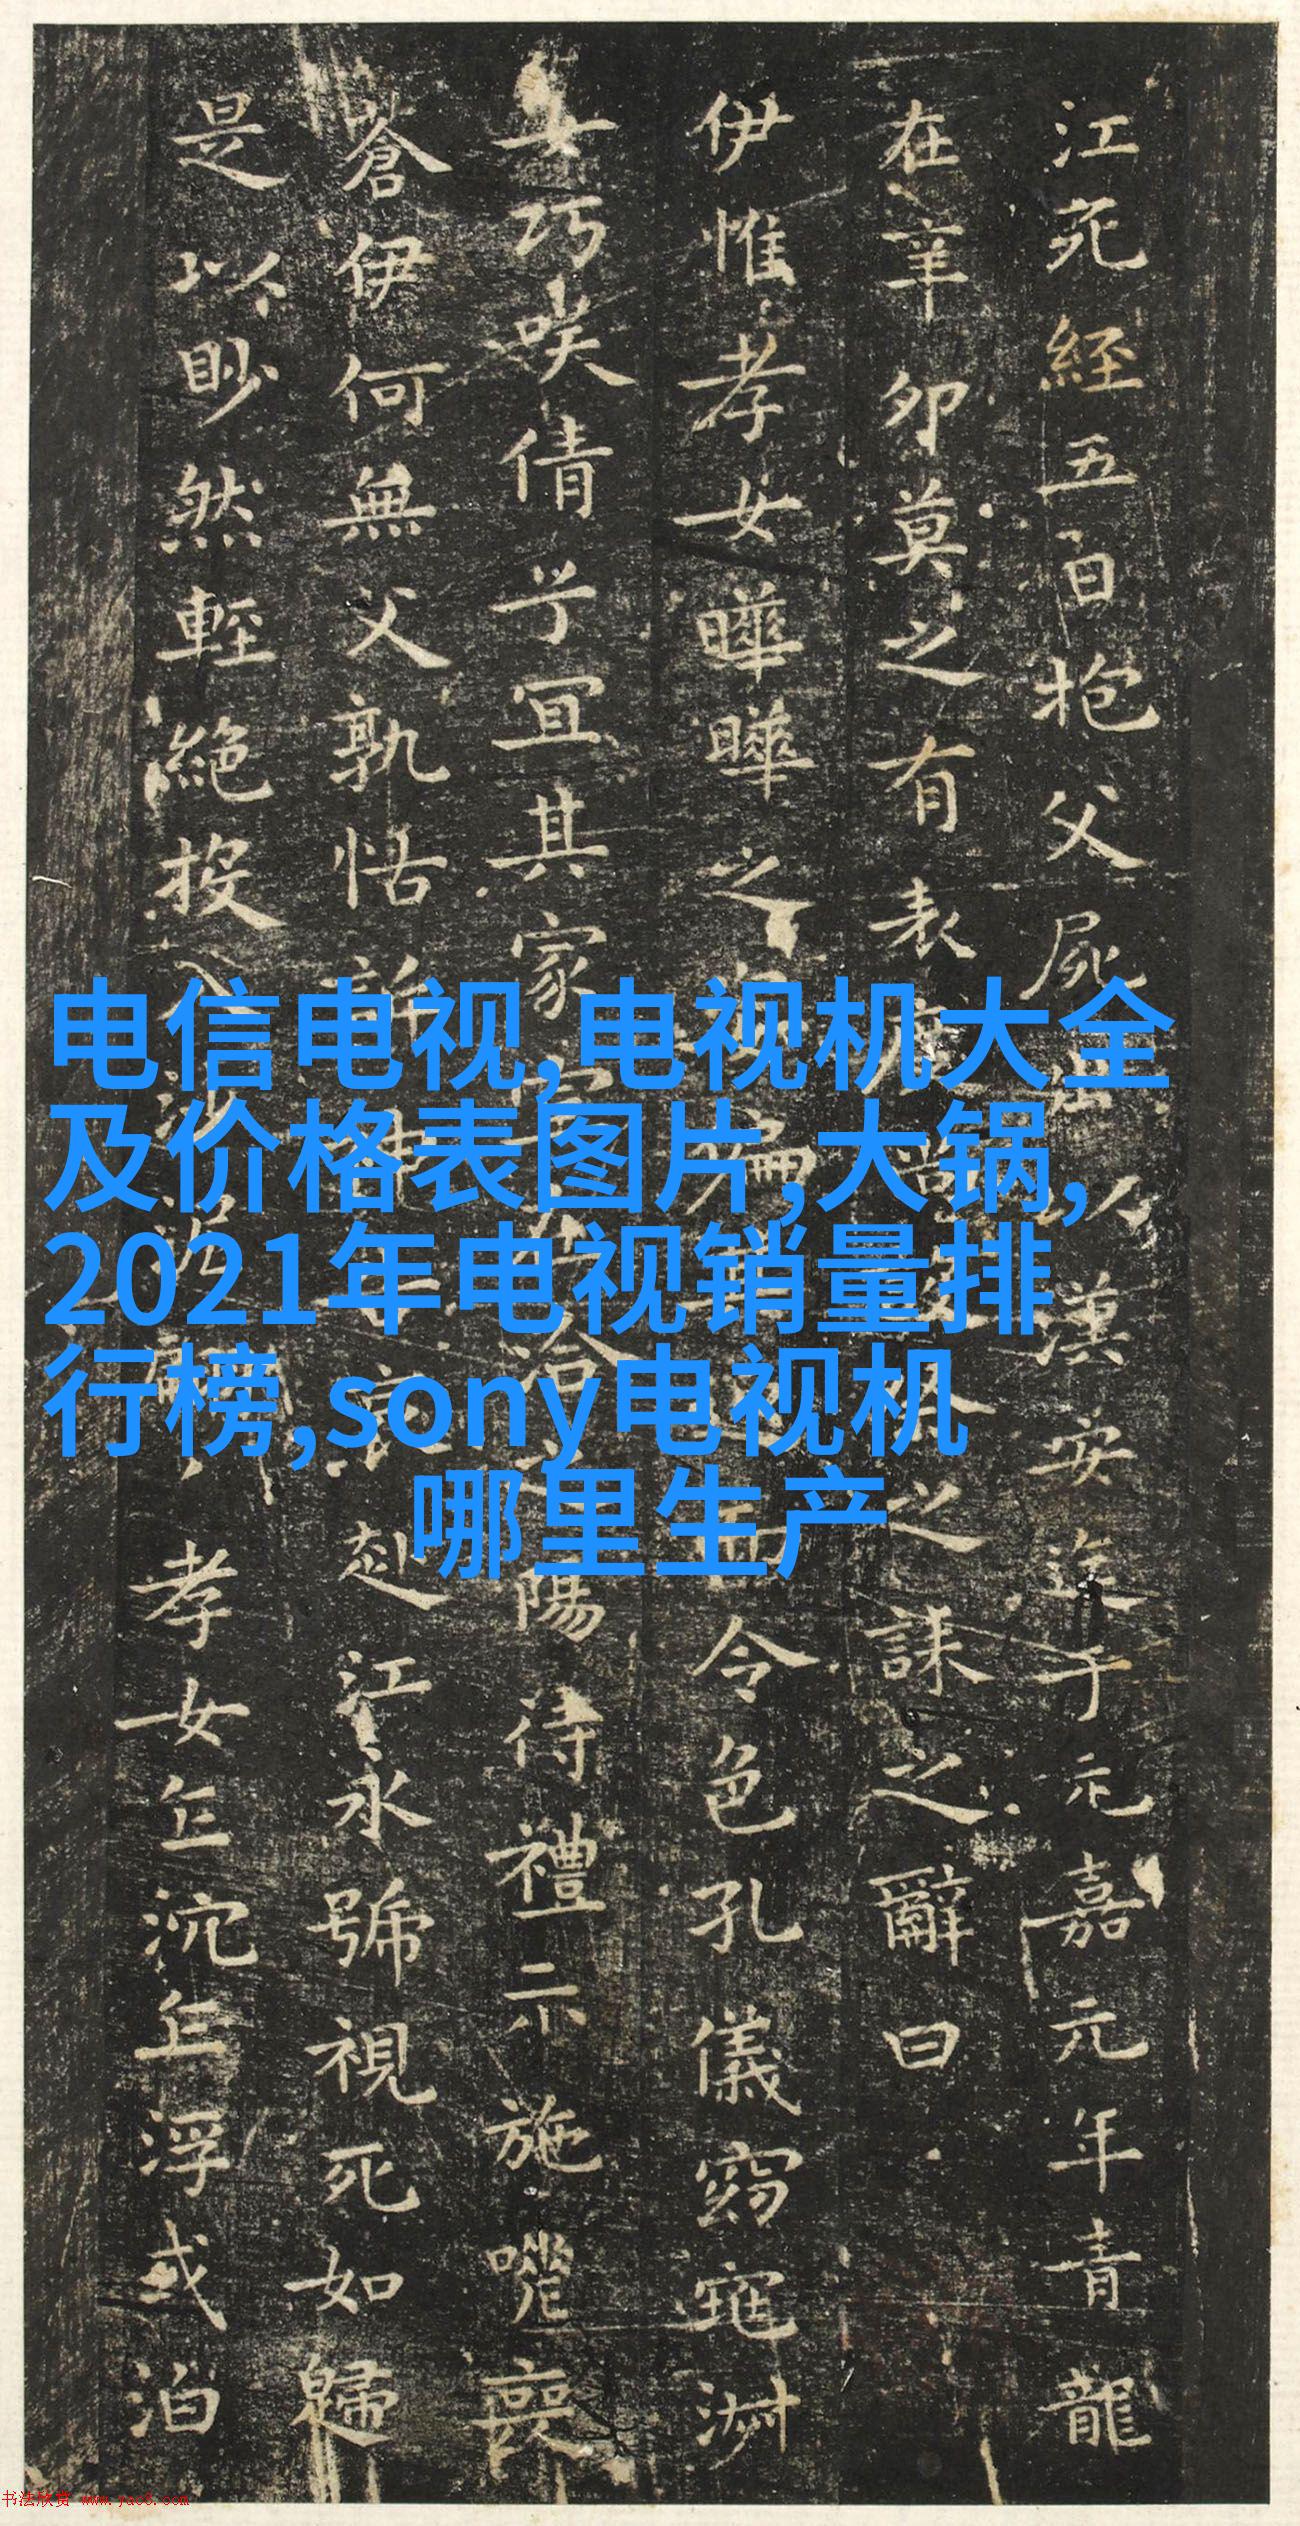 江死經五日抱父屍出以漢安迄于元嘉元年青龍
在辛卯莫之有表度尚設祭之誄之辭曰
伊惟孝女曄曄之姿偏其返而令色孔儀窈窕淑
女巧咲倩兮宜其家室在洽之陽待禮未施嗟喪
蒼伊何無父孰怙訴神告哀赴江永號視死如歸
是以眇然輕絕投入沙泥翩翩孝女乍沉乍浮或泊
电信电视,电视机大全
及价格表图片,大锅,
2021年电视销量排
行榜,sony电视机
哪里生产
书法欣赏 www.yac8.com